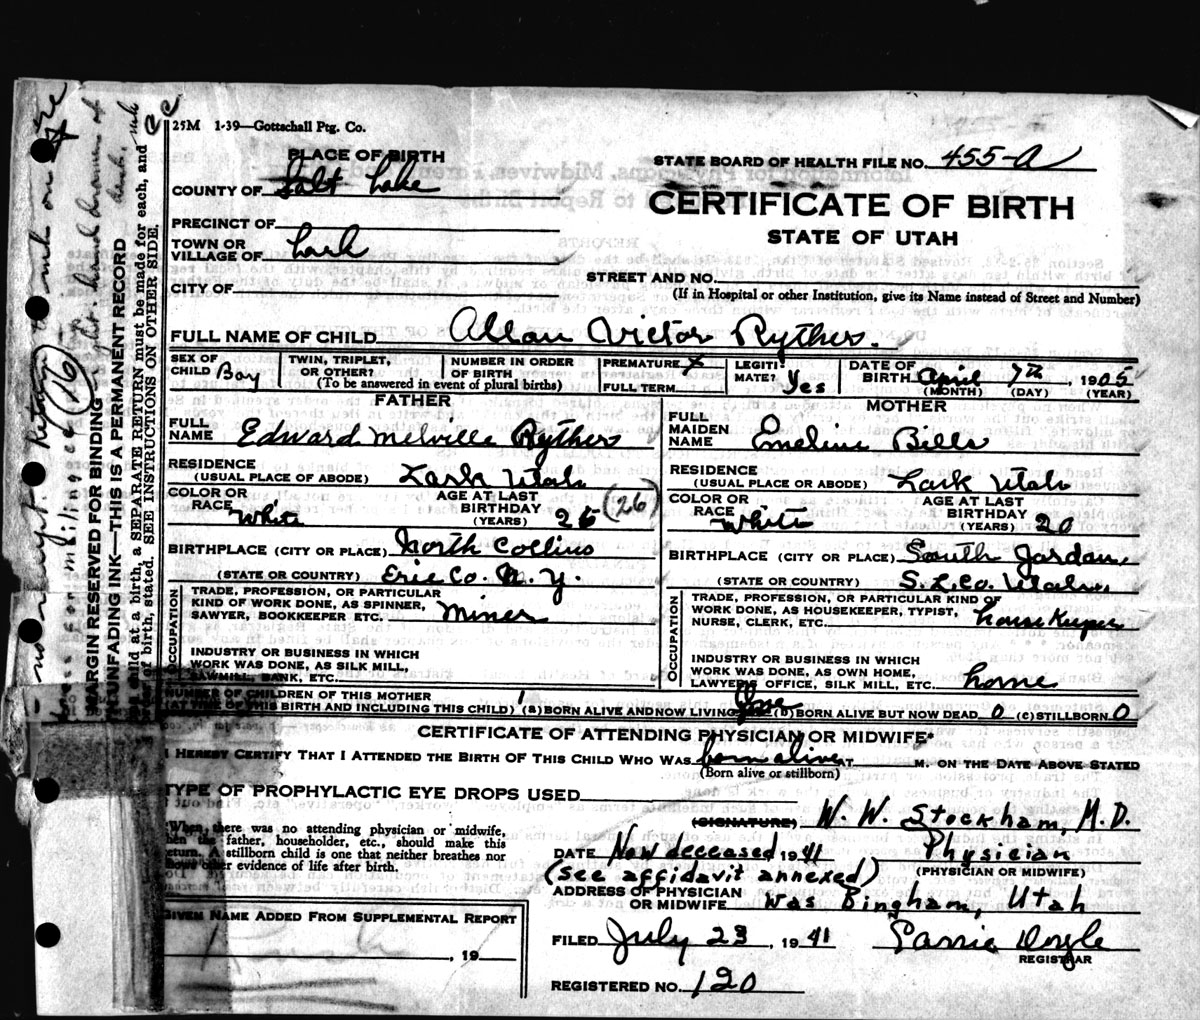 25M 1-39—Gottschall Ptg. Co.
PLACE OF BIRTH
STATE BOARD OF HEALTH FILE NO. 455-A
COUNTY OF Salt Lake
CERTIFICATE OF BIRTH
PRECINCT OF
STATE OF UTAH
TOWN OR
VILLAGE OF Lark
STREET AND NO.
CITY OF
(If in Hospital or other Institution, give its Name instead of Street and Number)
FULL NAME OF CHILD Allan Victor Rythers.
SEX OF CHILD Boy
TWIN, TRIPLET, OR OTHER?
NUMBER IN ORDER OF BIRTH
(To be answered in event of plural births)
PREMATURE X
FULL TERM
LEGITIMATE? Yes
DATE OF BIRTH April 7th, 1905
(MONTH) (DAY) (YEAR)
FATHER
FULL NAME Edward Melville Rythers
RESIDENCE
(USUAL PLACE OF ABODE) Lark Utah
COLOR OR RACE White
AGE AT LAST BIRTHDAY (YEARS) 25 (26)
BIRTHPLACE (CITY OR PLACE) North Collins
(STATE OR COUNTRY) Erie Co. N.Y.
OCCUPATION
TRADE, PROFESSION, OR PARTICULAR
KIND OF WORK DONE, AS SPINNER,
SAWYER, BOOKKEEPER ETC. Miner
INDUSTRY OR BUSINESS IN WHICH
WORK WAS DONE, AS SILK MILL,
SAWMILL, BANK, ETC.
MOTHER
FULL MAIDEN NAME Emeline Bills
RESIDENCE
(USUAL PLACE OR ABODE) Lark Utah
COLOR OR RACE White
AGE AT LAST BIRTHDAY (YEARS) 20
BIRTHPLACE (CITY OR PLACE) South Jordan,
(STATE OR COUNTRY) S.L.Co. Utah
OCCUPATION
TRADE, PROFESSION, OR PARTICULAR KIND OF
WORK DONE, AS HOUSEKEEPER, TYPIST,
NURSE, CLERK, ETC. House Keeper
INDUSTRY OR BUSINESS IN WHICH
WORK WAS DONE, AS OWN HOME,
LAWYERS OFFICE, SILK MILL, ETC. home
NUMBER OF CHILDREN OF THIS MOTHER 1
(AT TIME OF THIS BIRTH AND INCLUDING THIS CHILD) (A) BORN ALIVE AND NOW LIVING One (B) BORN ALIVE BUT NOW DEAD 0 (C) STILLBORN 0
CERTIFICATE OF ATTENDING PHYSICIAN OR MIDWIFE*
I HEREBY CERTIFY THAT I ATTENDED THE BIRTH OF THIS CHILD WHO WAS born alive AT M. ON THE DATE ABOVE STATED
(Born alive or stillborn)
TYPE OF PROPHYLACTIC EYE DROPS USED
(SIGNATURE) W. W. Stockham, M.D.
*When there was no attending physician or midwife,
then the father, householder, etc., should make this
return. A stillborn child is one that neither breathes nor
shows other evidence of life after birth.
DATE Now deceased 1941 Physician
(PHYSICIAN OR MIDWIFE)
(see affidavit annexed)
ADDRESS OF PHYSICIAN
OR MIDWIFE Was Bingham, Utah
GIVEN NAME ADDED FROM SUPPLEMENTAL REPORT
, 19
FILED July 23, 1941 Doyle
REGISTRAR
REGISTERED NO. 120
MARGIN RESERVED FOR BINDING
UNFADING INK—THIS IS A PERMANENT RECORD
child at a birth, a SEPARATE RETURN must be made for each, and
of birth, stated. SEE INSTRUCTIONS ON OTHER SIDE.